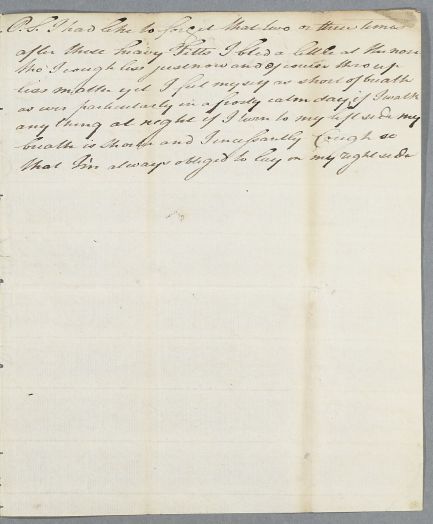 P.S. I had like to forget that two or three times
after these heavy Fitts I bled a little at the nose
tho I cough less just now and of course throw up
less matter yet I feel myself as short of breath
as ever particularly in a frosty calm day if I walk
any thing at night if I turn to my left side my
breath is shorter and I incessantly Cough so
that I'm always obliged to lay on my right side